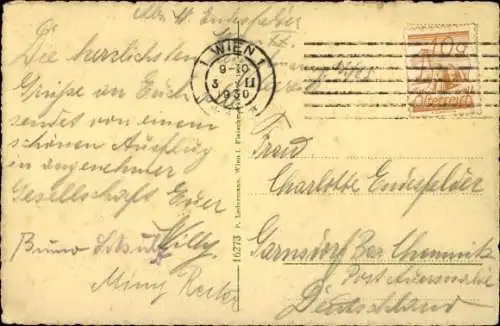 Die herzlichsten
Grüße an Euch
sendet von einem
schönen Ausflug
in angenehmer
Gesellschaft Euer
Willy
Bruno
Miny
1 WIEN 1
9-10
3 II
1930
10g
Österreich
16273 P. Ledermann, Wien I.
Frau
Charlotte Endesfelder
Garnsdorf Bez Chemnitz
Post Auerswalde
Deutschland